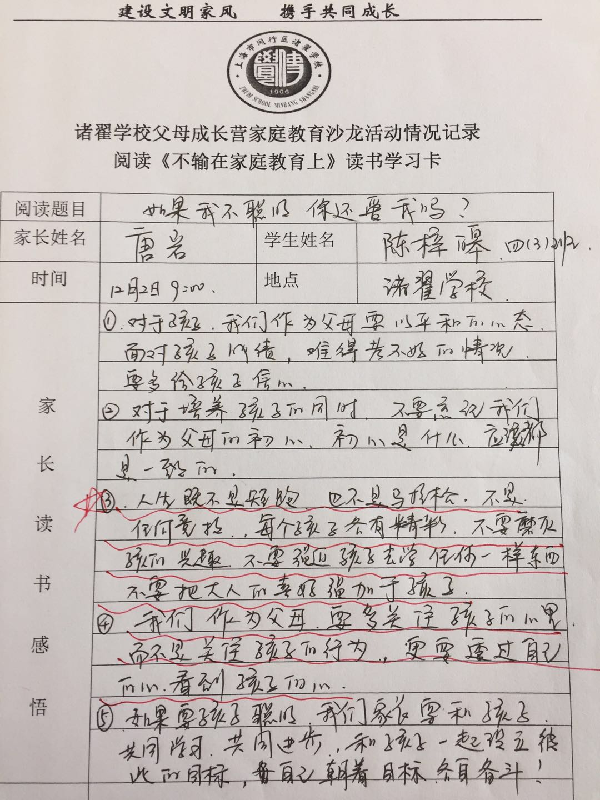 建设文明家风 携手共同成长
上海市闵行区诸翟学校
1906
诸翟学校父母成长营家庭教育沙龙活动情况记录
阅读《不输在家庭教育上》读书学习卡
阅读题目 如果我不聪明 你还爱我吗?
家长姓名 唐岩 学生姓名 陈梓皞 四(3)
时间 12月2日 9:00. 地点 诸翟学校.
家长读书感悟
①.对于孩子.我们作为父母要以平和的心态.
面对孩子成绩,难得考不好的情况.
要多给孩子信心.
② 对于培养孩子的同时.不要忘记我们
作为父母的初心.初心是什么.应该都
是一致的.
③.人生既不是短跑.也不是马拉松.不是
任何竞技.每个孩子各有精彩.不要磨灭
孩的兴趣.不要强迫孩子去学任何一样东西
不要把大人的喜好强加于孩子.
④ 我们作为父母.要多关注孩子的心里.
而不是关注孩子的行为,更要透过自己
的心.看到孩子的心.
⑤ 如果要孩子聪明.我们家长要和孩子.
共同学习.共同进步.和孩子一起设立彼
此的目标,每自己朝着目标.各自奋斗!